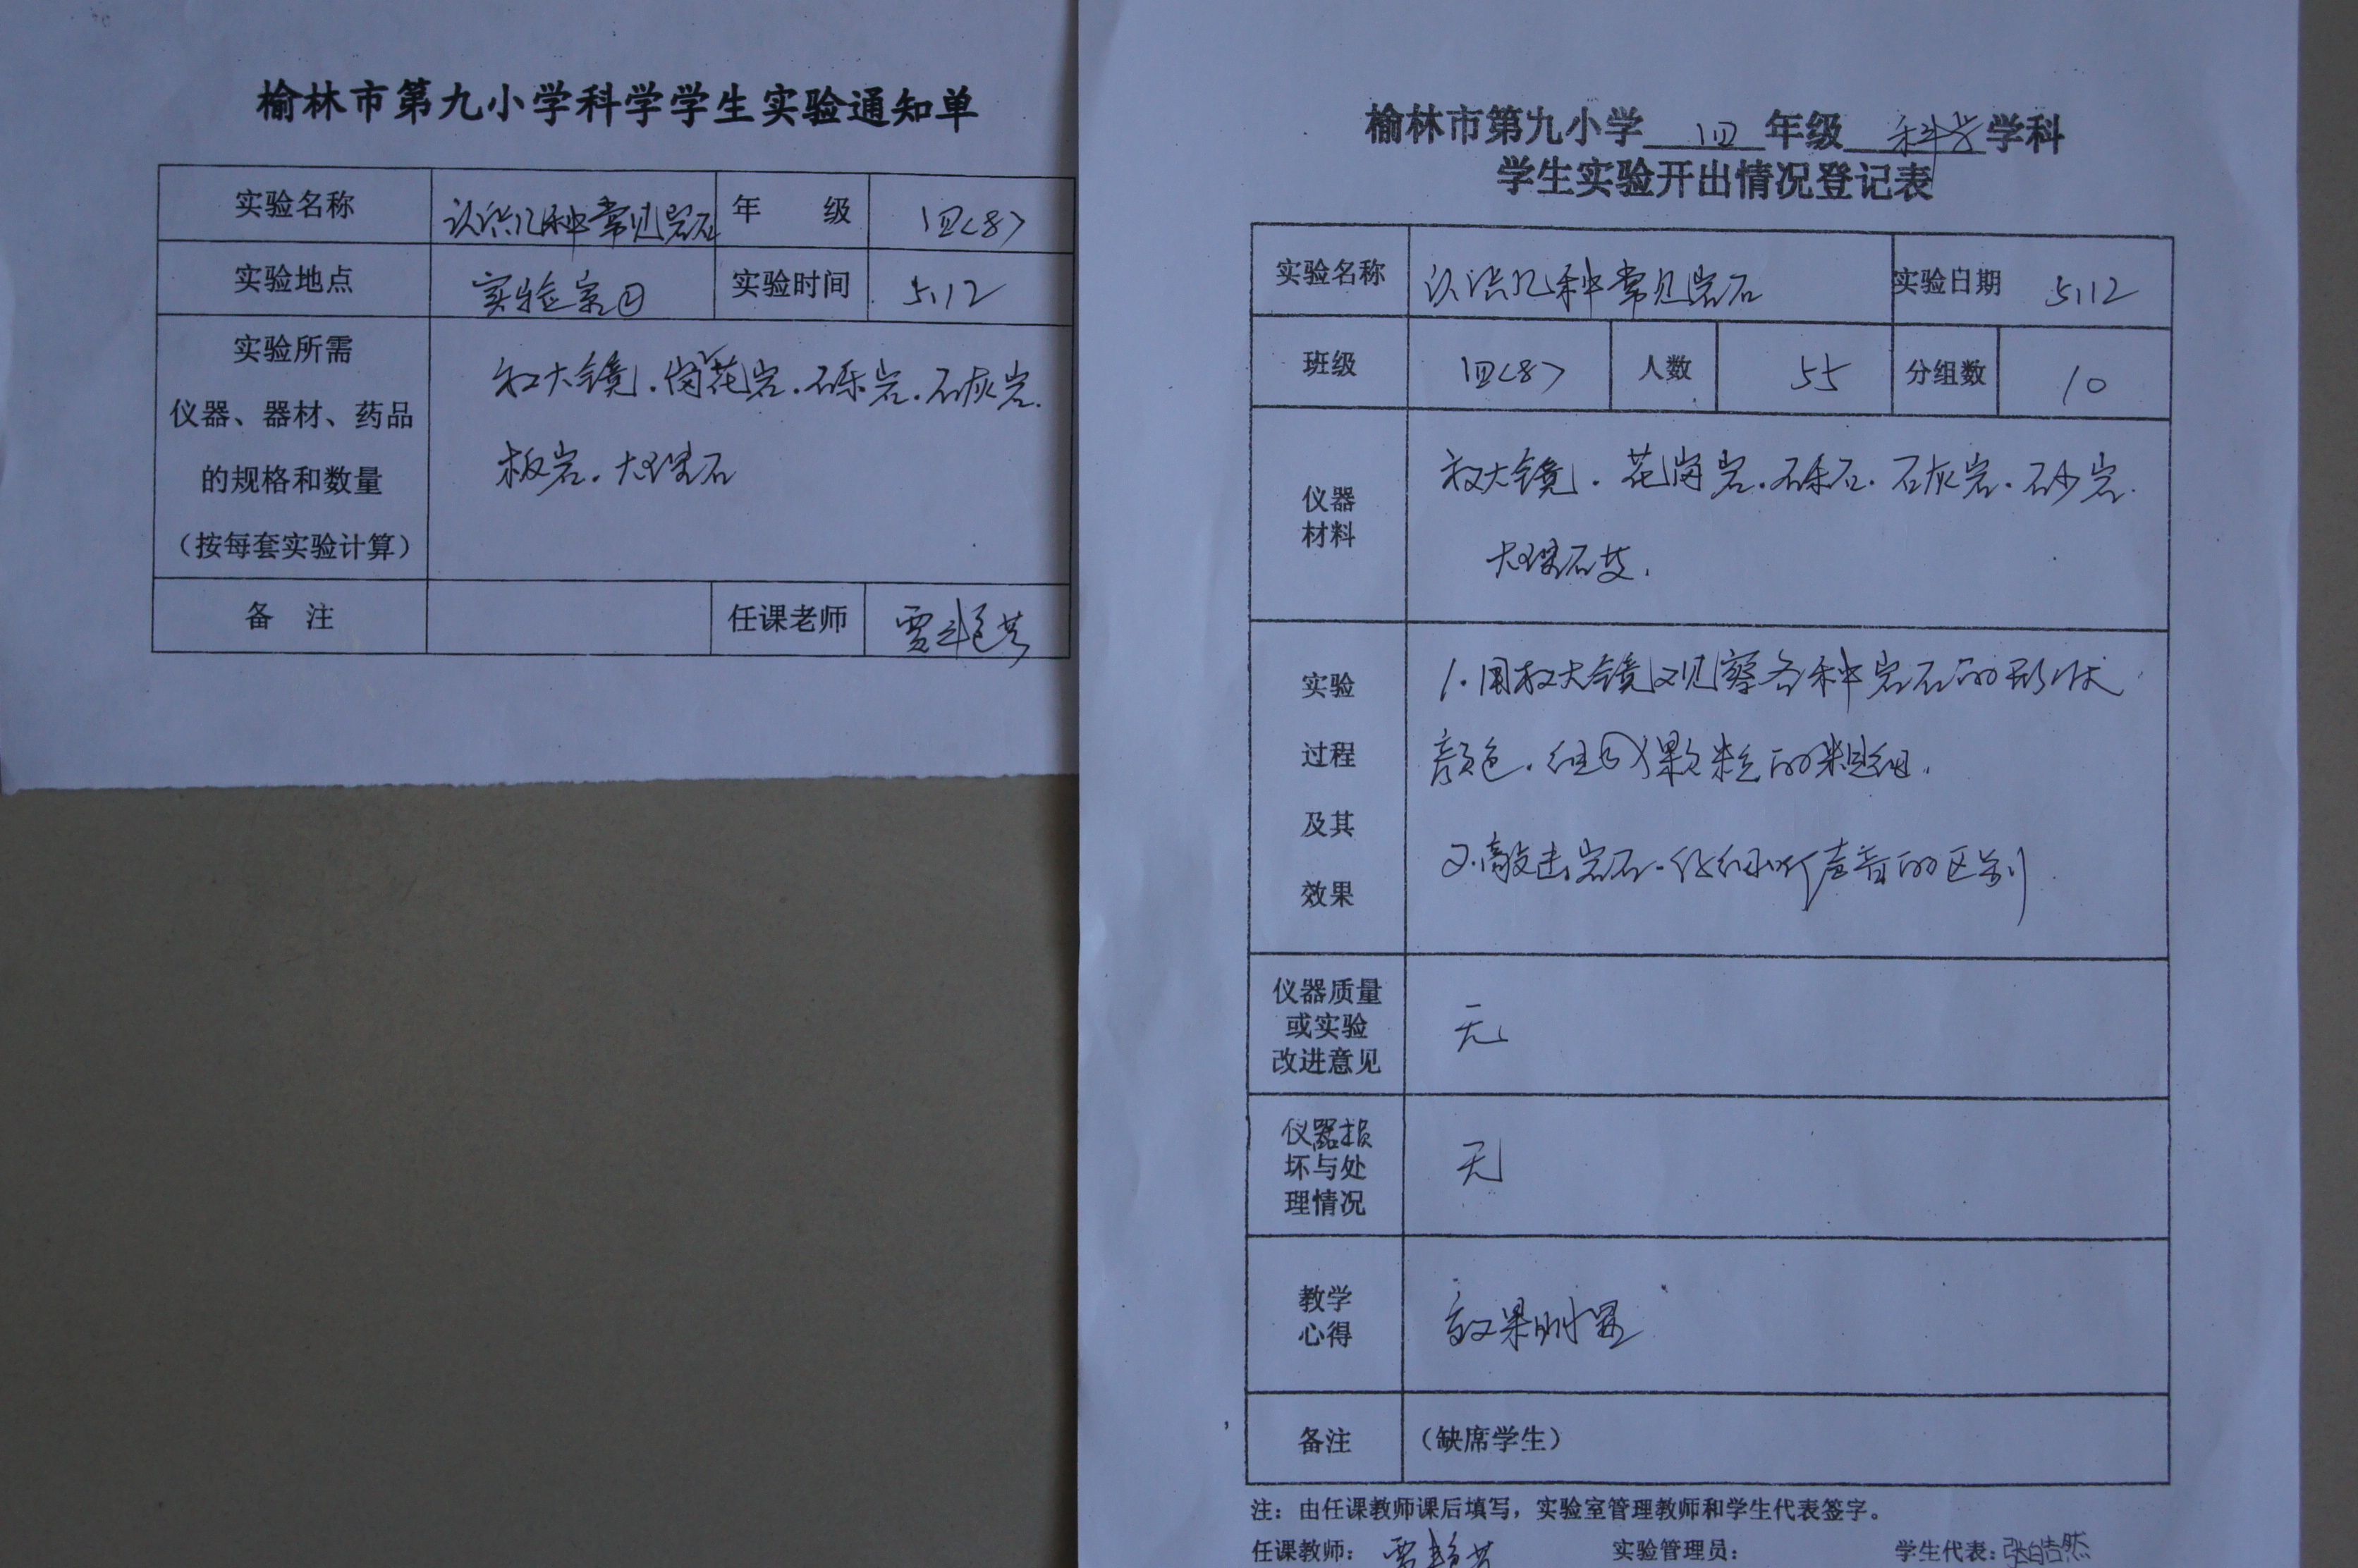 榆林市第九小学科学学生实验通知单
实验名称 认识几种常见岩石 年 级 四<8>
实验地点 实验室② 实验时间 5.12
实验所需
仪器、器材、药品
的规格和数量
（按每套实验计算）
放大镜.岗花岩.砾岩.石灰岩.
板岩.大理石
备 注 任课老师 贾艳芳
榆林市第九小学 四 年级 科学 学科
学生实验开出情况登记表
实验名称 认识几种常见岩石 实验日期 5.12
班级 四<8> 人数 55 分组数 10
仪器
材料
放大镜.花岗岩.砾石.石灰岩.砂岩.
大理石
实验
过程
及其
效果
1.用放大镜观察各种岩石的形状
颜色.组成颗粒的粗细.
2.敲击岩石.仔细听声音的区别
仪器质量
或实验
改进意见
无
仪器损
坏与处
理情况
无
教学
心得
效果明显
备注 （缺席学生）
注：由任课教师课后填写，实验室管理教师和学生代表签字。
任课教师： 贾艳芳 实验管理员： 学生代表：张皓然